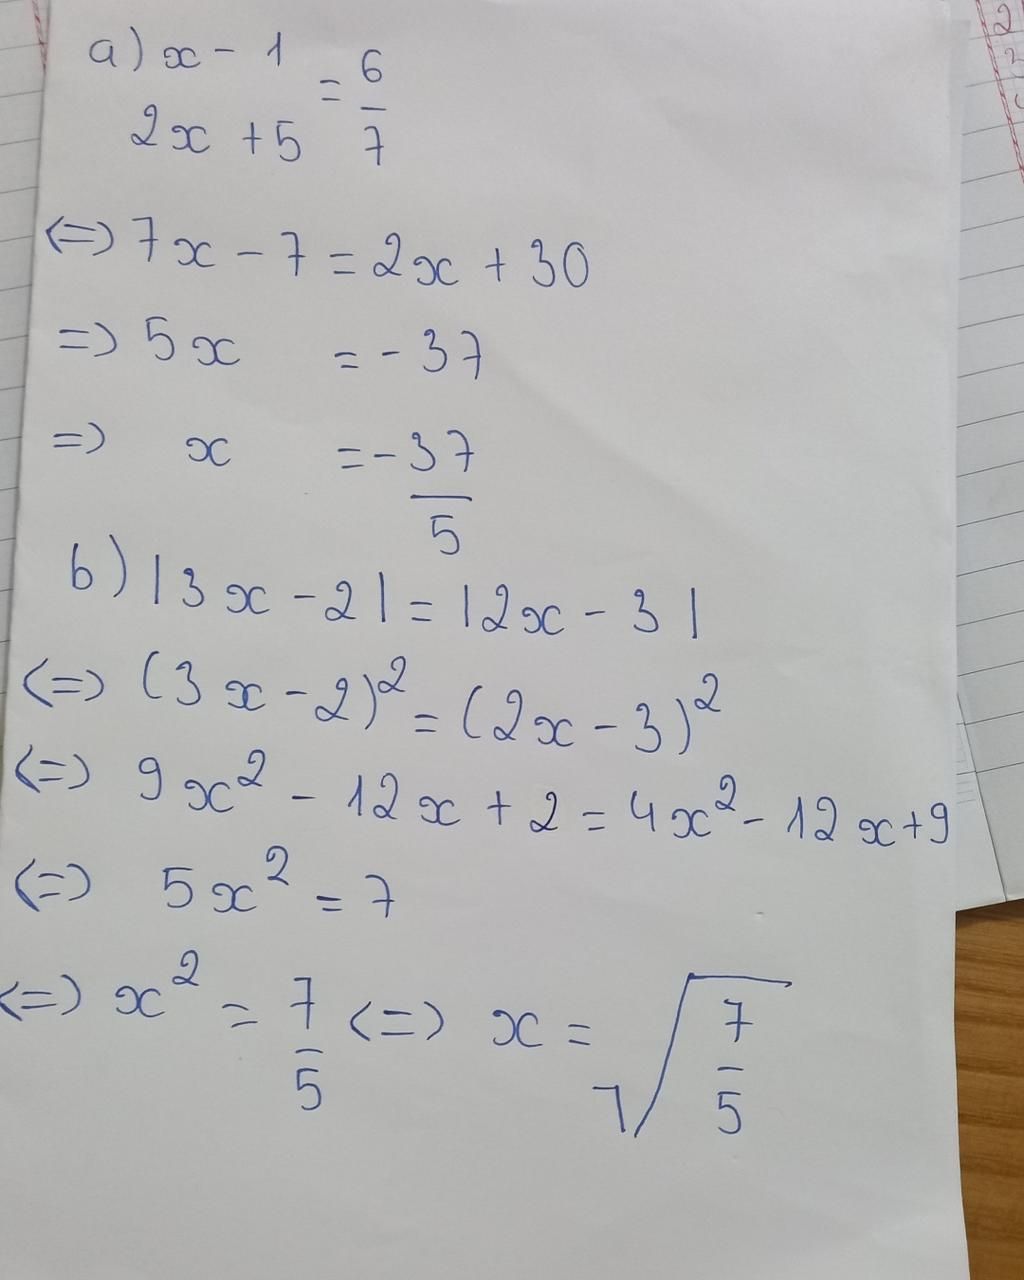 a) x - 1 = 6
2x + 5 7
<=> 7x - 7 = 2x + 30
=> 5x = - 37
=> x = - 37
5
b) |3x - 2| = |2x - 3|
<=> (3x - 2)² = (2x - 3)²
<=> 9x² - 12x + 2 = 4x² - 12x + 9
<=> 5x² = 7
<=> x² = 7/5 <=> x = √(7/5)
2
3